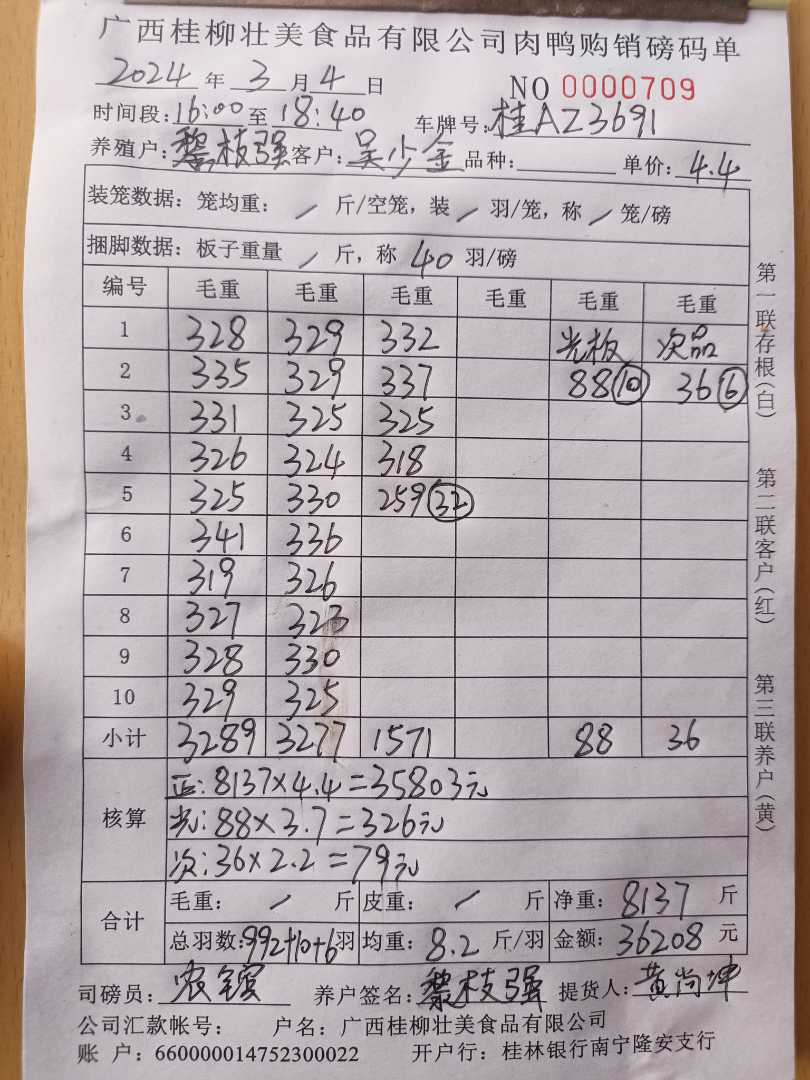 广西桂柳壮美食品有限公司肉鸭购销磅码单
2024 年 3 月 4 日 NO 0000709
时间段:16:00 至 18:40 车牌号:桂AZ3691
养殖户:黎枝强 客户:吴少金 品种: 单价:4.4
装笼数据:笼均重: / 斤/空笼,装 / 羽/笼,称 / 笼/磅
捆脚数据:板子重量 / 斤,称 40 羽/磅
编号 毛重 毛重 毛重 毛重 毛重 毛重
1 328 329 332 光板 次品
2 335 329 337 88⑩ 36⑥
3 331 325 325
4 326 324 318
5 325 330 259㉜
6 341 336
7 319 326
8 327 323
9 328 330
10 329 325
小计 3289 3277 1571 88 36
核算 正:8137×4.4=35803元
光:88×3.7=326元
次:36×2.2=79元
合计 毛重: / 斤 皮重: / 斤 净重:8137 斤
总羽数:992+10+6羽 均重:8.2 斤/羽 金额:36208 元
司磅员: 养户签名:黎枝强 提货人:黄尚坤
公司汇款帐号: 户名:广西桂柳壮美食品有限公司
账 户:660000014752300022 开户行:桂林银行南宁隆安支行
第一联存根(白)
第二联客户(红)
第三联养户(黄)